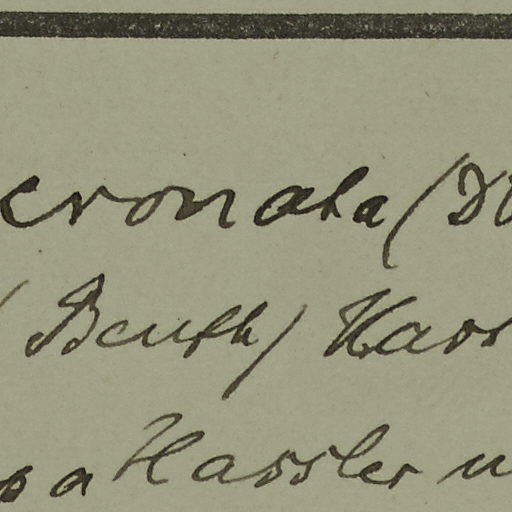 cronata (D
(Benth) Hass
a Hassler n